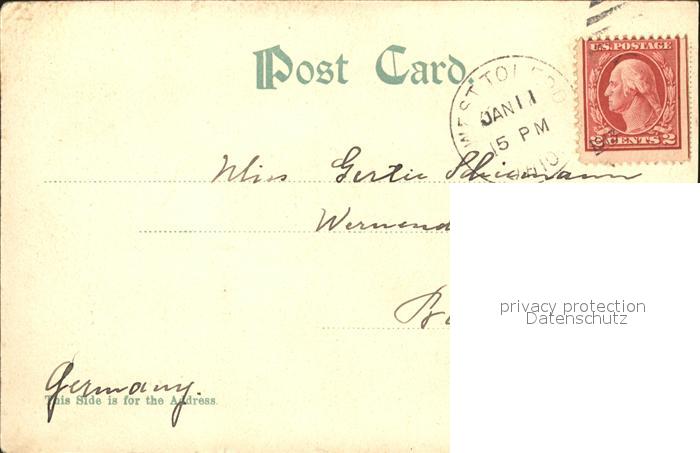 Post Card.
U.S. POSTAGE
2 CENTS 2
WEST TOLEDO
JAN 11
15 PM
OHIO
Miss Gertie
privacy protection
Datenschutz
Germany.
This Side is for the Address.